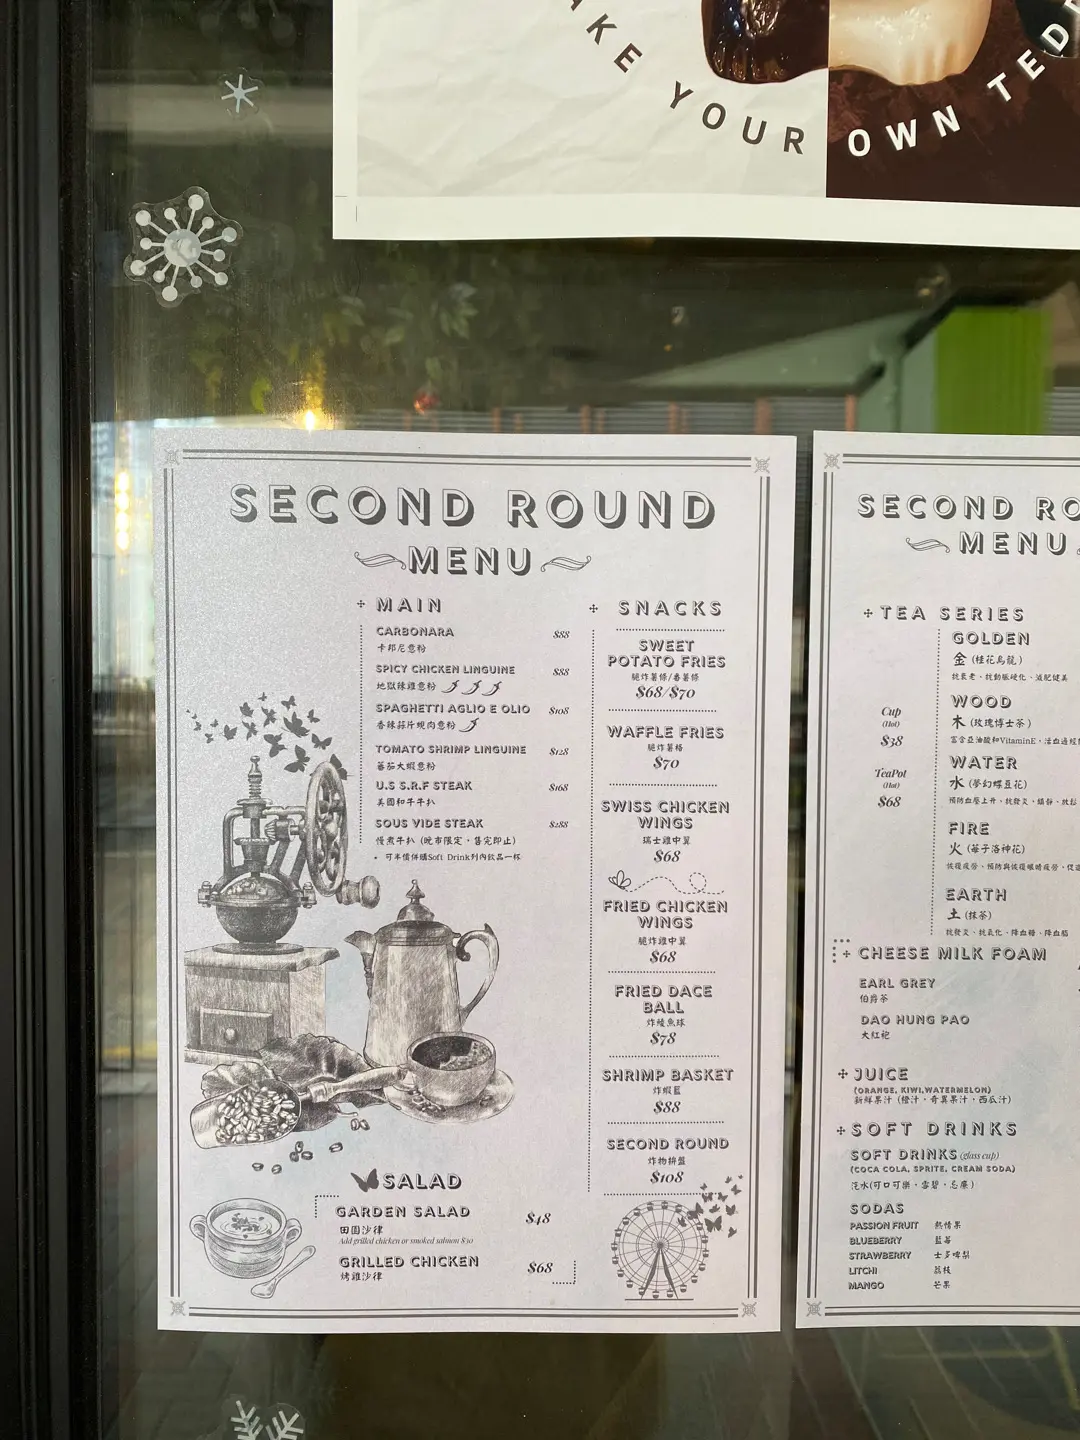 AKE YOUR OWN TED
SECOND ROUND
MENU
MAIN
CARBONARA $88
卡邦尼意粉
SPICY CHICKEN LINGUINE $88
地獄辣雞意粉
SPAGHETTI AGLIO E OLIO $108
香辣蒜片蜆肉意粉
TOMATO SHRIMP LINGUINE $128
蕃茄大蝦意粉
U.S S.R.F STEAK $168
美國和牛牛扒
SOUS VIDE STEAK $288
慢煮牛扒 (晚市限定，售完即止)
• 可半價併購Soft Drink列內飲品一杯
SALAD
GARDEN SALAD $48
田園沙律
Add grilled chicken or smoked salmon $30
GRILLED CHICKEN $68
烤雞沙律
SNACKS
SWEET
POTATO FRIES
脆炸薯條/番薯條
$68/$70
WAFFLE FRIES
脆炸薯格
$70
SWISS CHICKEN
WINGS
瑞士雞中翼
$68
FRIED CHICKEN
WINGS
脆炸雞中翼
$68
FRIED DACE
BALL
炸鯪魚球
$78
SHRIMP BASKET
炸蝦籃
$88
SECOND ROUND
炸物拼盤
$108
SECOND RO
MENU
TEA SERIES
Cup
(Hot)
$38
TeaPot
(Hot)
$68
GOLDEN
金 (桂花烏龍)
抗衰老、抗動脈硬化、減肥健美
WOOD
木 (玫瑰博士茶)
富含亞油酸和VitaminE、活血通經
WATER
水 (夢幻蝶豆花)
預防血壓上升、抗發炎、鎮靜、放鬆
FIRE
火 (莓子洛神花)
恢復疲勞、預防與恢復眼睛疲勞、促
EARTH
土 (抹茶)
抗發炎、抗氧化、降血糖、降血脂
CHEESE MILK FOAM
EARL GREY
伯爵茶
DAO HUNG PAO
大紅袍
JUICE
(ORANGE, KIWI,WATERMELON)
新鮮果汁 (橙汁、奇異果汁、西瓜汁)
SOFT DRINKS
SOFT DRINKS (glass cup)
(COCA COLA, SPRITE, CREAM SODA)
汽水(可口可樂、雪碧、忌廉)
SODAS
PASSION FRUIT 熱情果
BLUEBERRY 藍莓
STRAWBERRY 士多啤梨
LITCHI 荔枝
MANGO 芒果